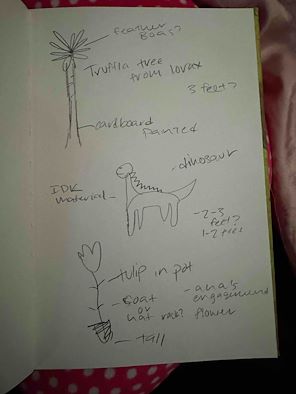 feather
Boas?
Truffla tree
from lorax
3 feet?
cardboard
painted
dinosaur
IDK
material
2-3
feet?
1-2
tulip in pot
coat
or
hat rack?
ana's
engagement
flower
tall